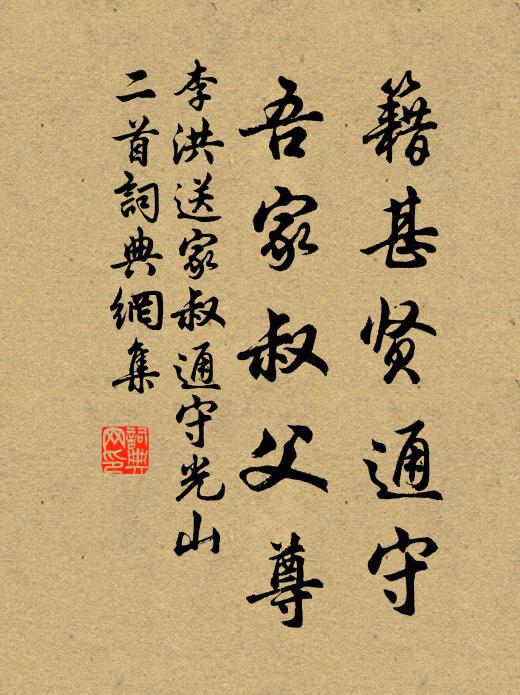 籍甚贤通守
吾家叔父尊
李洪送家叔通守光山
二首詞典網集
詞典網印